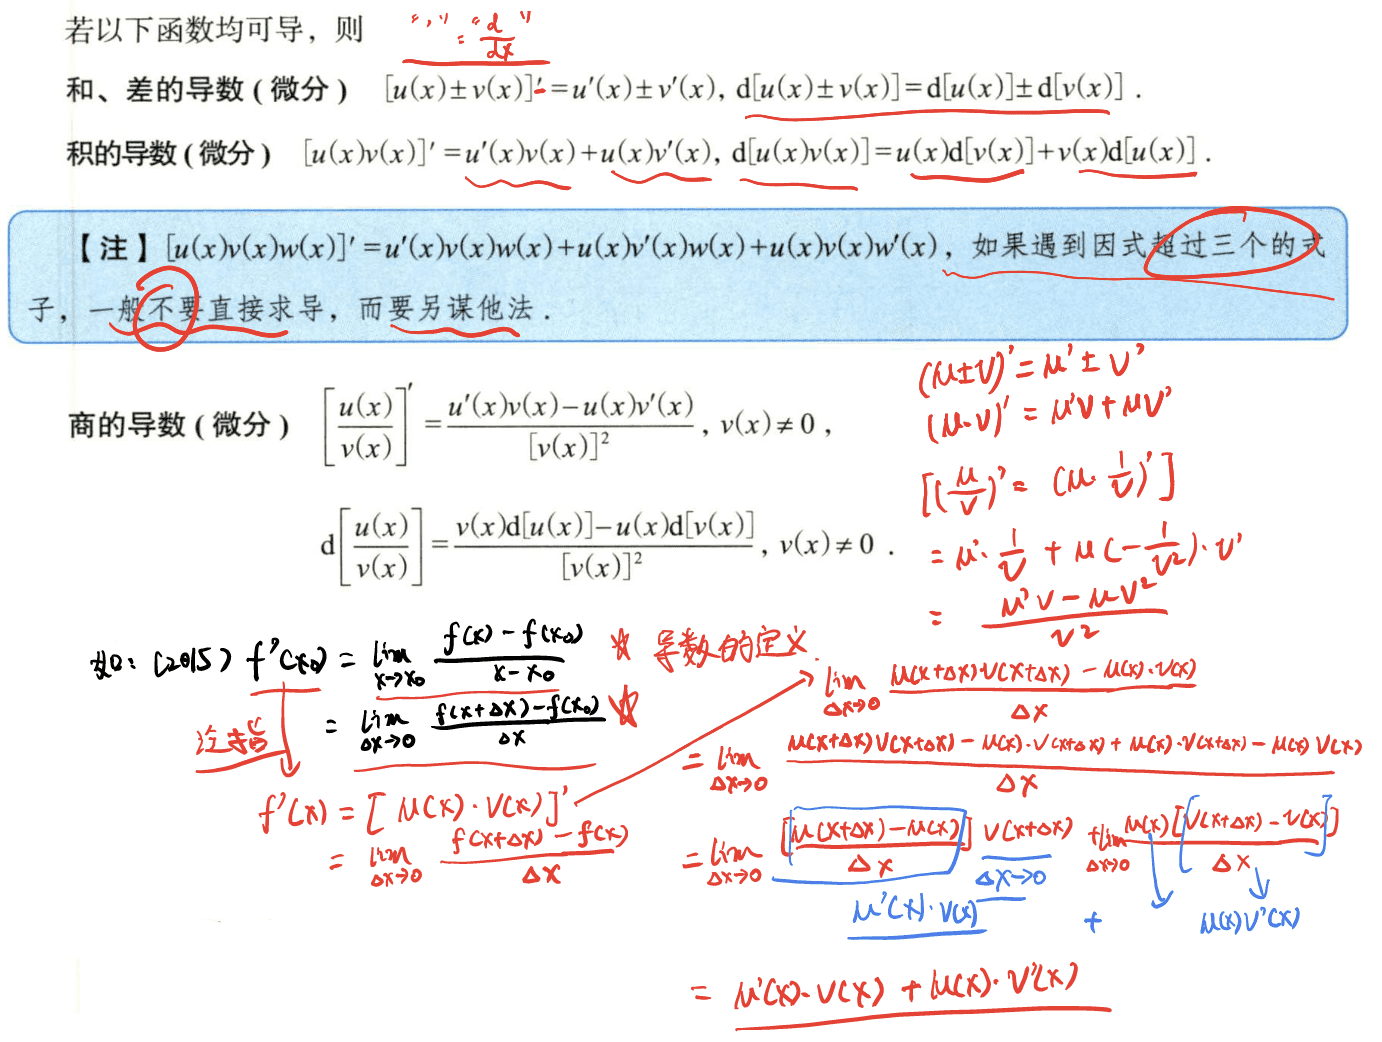 若以下函数均可导，则
“ ′ ” = “ d/dx ”
和、差的导数(微分) [u(x)±v(x)]′=u′(x)±v′(x), d[u(x)±v(x)]=d[u(x)]±d[v(x)].
积的导数(微分) [u(x)v(x)]′=u′(x)v(x)+u(x)v′(x), d[u(x)v(x)]=u(x)d[v(x)]+v(x)d[u(x)].
【注】[u(x)v(x)w(x)]′=u′(x)v(x)w(x)+u(x)v′(x)w(x)+u(x)v(x)w′(x)，如果遇到因式超过三个的式
子，一般不要直接求导，而要另谋他法.
商的导数(微分) [u(x)/v(x)]′ = (u′(x)v(x)−u(x)v′(x))/[v(x)]², v(x)≠0,
d[u(x)/v(x)] = (v(x)d[u(x)]−u(x)d[v(x)])/[v(x)]², v(x)≠0.
(u±v)′=u′±v′
(u·v)′=u′v+uv′
[(u/v)′=(u·1/v)′]
=u′·1/v+u(−1/v²)·v′
=(u′v−uv²)/v²
如：(2015) f′(x₀) = lim x→x₀ (f(x)−f(x₀))/(x−x₀) ☆ 导数的定义.
= lim Δx→0 (f(x+Δx)−f(x₀))/Δx ☆
f′(x) = [u(x)·v(x)]′
= lim Δx→0 (f(x+Δx)−f(x))/Δx
lim Δx→0 (u(x+Δx)·v(x+Δx)−u(x)·v(x))/Δx
= lim Δx→0 (u(x+Δx)v(x+Δx)−u(x)·v(x+Δx)+u(x)·v(x+Δx)−u(x)v(x))/Δx
= lim Δx→0 [u(x+Δx)−u(x)]/Δx v(x+Δx) + lim Δx→0 u(x)[v(x+Δx)−v(x)]/Δx
Δx→0
u′(x)·v(x) + u(x)v′(x)
= u′(x)·v(x)+u(x)·v′(x)